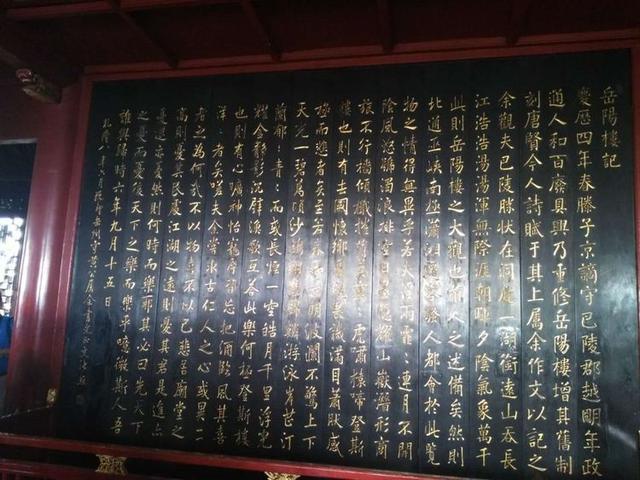 岳陽樓記
慶歷四年春滕子京謫守巴陵郡越明年政
通人和百廢具興乃重修岳陽樓增其舊制
刻唐賢今人詩賦于其上屬余作文以記之
余觀夫巴陵勝狀在洞庭一湖銜遠山吞長
江浩浩湯湯渾無際涯朝暉夕陰氣象萬千
此則岳陽樓之大觀也前人之述備矣然則
北通巫峽南極瀟湘遷客騷人都會於此覽
物之情得無異乎若夫淫雨霏霏連月不開
陰風怒號濁浪排空日星隱耀山嶽潛形商
旅不行檣傾楫摧薄暮冥冥虎嘯猿啼登斯
樓也則有去國懷鄉憂讒畏譏滿目蕭然感
極而悲者矣至若春和景明波瀾不驚上下
天光一碧萬頃沙鷗翔集錦鱗游泳岸芷汀
蘭郁郁青青而或長煙一空皓月千里浮光
耀金靜影沉璧漁歌互荅此樂何極登斯樓
也則有心曠神怡寵辱皆忘把酒臨風其喜
洋洋者矣嗟夫余嘗求古仁人之心或異二
者之為何哉不以物喜不以己悲居廟堂之
高則憂其民處江湖之遠則憂其君是進亦
憂退亦憂然則何時而樂耶其必曰先天下
之憂而憂後天下之樂而樂乎噫微斯人吾
誰與歸時六年九月十五日